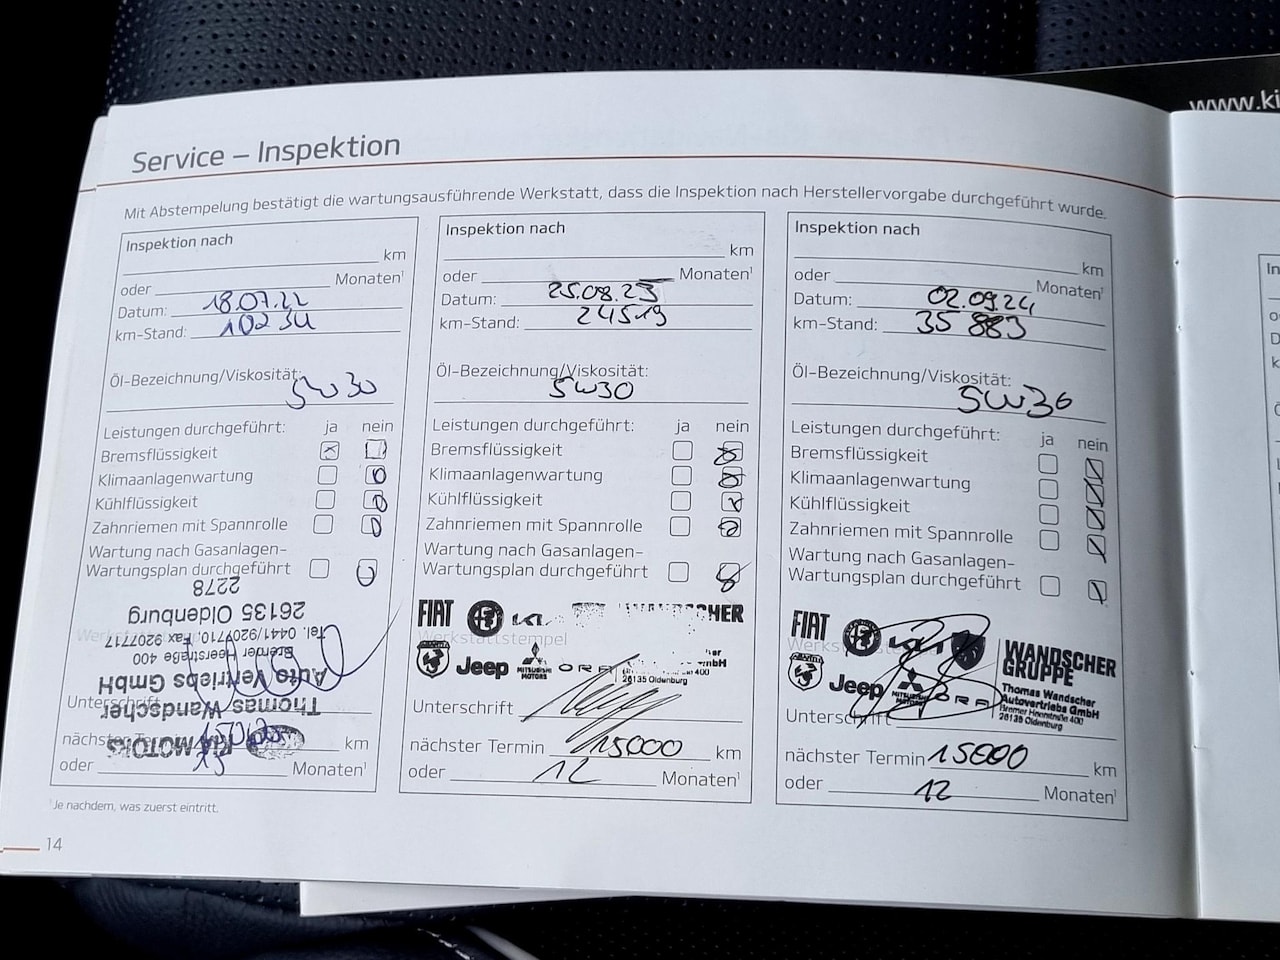 www.ki
Service – Inspektion
Mit Abstempelung bestätigt die wartungsausführende Werkstatt, dass die Inspektion nach Herstellervorgabe durchgeführt wurde.
Inspektion nach
km
oder Monaten¹
Datum: 18.07.22
km-Stand: 10234
Öl-Bezeichnung/Viskosität:
5W30
Leistungen durchgeführt: ja nein
Bremsflüssigkeit
Klimaanlagenwartung
Kühlflüssigkeit
Zahnriemen mit Spannrolle
Wartung nach Gasanlagen-
Wartungsplan durchgeführt
KIA MOTORS
Thomas Wandscher
Auto Vertriebs GmbH
Bremer Heerstraße 400
Tel. 0441/9207710, Fax 9207717
26135 Oldenburg
2278
Unterschrift
nächster km
oder Monaten¹
Inspektion nach
km
oder Monaten¹
Datum: 25.08.23
km-Stand: 24519
Öl-Bezeichnung/Viskosität:
5W30
Leistungen durchgeführt: ja nein
Bremsflüssigkeit
Klimaanlagenwartung
Kühlflüssigkeit
Zahnriemen mit Spannrolle
Wartung nach Gasanlagen-
Wartungsplan durchgeführt
FIAT KIA WANDSCHER
Werkstattstempel
Jeep MITSUBISHI MOTORS ORA
26135 Oldenburg
Unterschrift
nächster Termin 15000 km
oder 12 Monaten¹
Inspektion nach
km
oder Monaten¹
Datum: 02.09.24
km-Stand: 35 883
Öl-Bezeichnung/Viskosität:
5W30
Leistungen durchgeführt: ja nein
Bremsflüssigkeit
Klimaanlagenwartung
Kühlflüssigkeit
Zahnriemen mit Spannrolle
Wartung nach Gasanlagen-
Wartungsplan durchgeführt
FIAT KIA
Jeep MITSUBISHI MOTORS ORA
WANDSCHER
GRUPPE
Thomas Wandscher
Autovertriebs GmbH
Bremer Heerstraße 400
26135 Oldenburg
Unterschrift
nächster Termin 15000 km
oder 12 Monaten¹
¹Je nachdem, was zuerst eintritt.
14